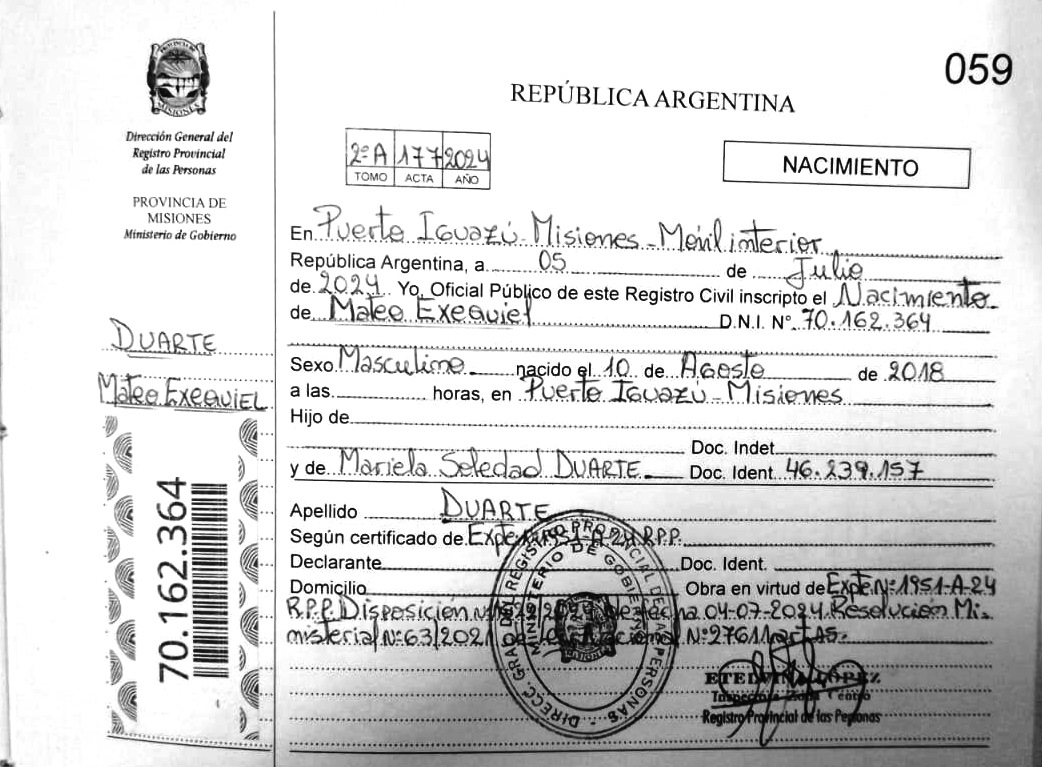 PROVINCIA DE
MISIONES
Dirección General del
Registro Provincial
de las Personas
PROVINCIA DE
MISIONES
Ministerio de Gobierno
DUARTE
Mateo EXEQUIEL
70.162.364
059
REPÚBLICA ARGENTINA
2º A 177 2024
TOMO ACTA AÑO
NACIMIENTO
En Puerto Iguazú - Misiones - Móvil interior
República Argentina, a 05 de Julio
de 2024 Yo, Oficial Público de este Registro Civil inscripto el Nacimiento
de Mateo Exequiel D.N.I. N° 70.162.364
Sexo Masculino nacido el 10 de Agosto de 2018
a las horas, en Puerto Iguazú - Misiones
Hijo de
Doc. Indet
y de Mariela Soledad DUARTE Doc. Ident. 46.239.157
Apellido DUARTE
Según certificado de Expte R.P.P.
Declarante Doc. Ident.
Domicilio Obra en virtud de Expte Nº 1951-A-24
R.P.P. Disposición fecha 04-07-2024. Resolución Mi-
nisterial Nº 63/2021 Nacional Nº 27611 art
DIRECC. GRAL. DEL REGISTRO PROVINCIAL DE LAS PERSONAS
MINISTERIO DE GOBIERNO
ETELVINA LOPEZ
Zona Centro
Registro Provincial de las Personas